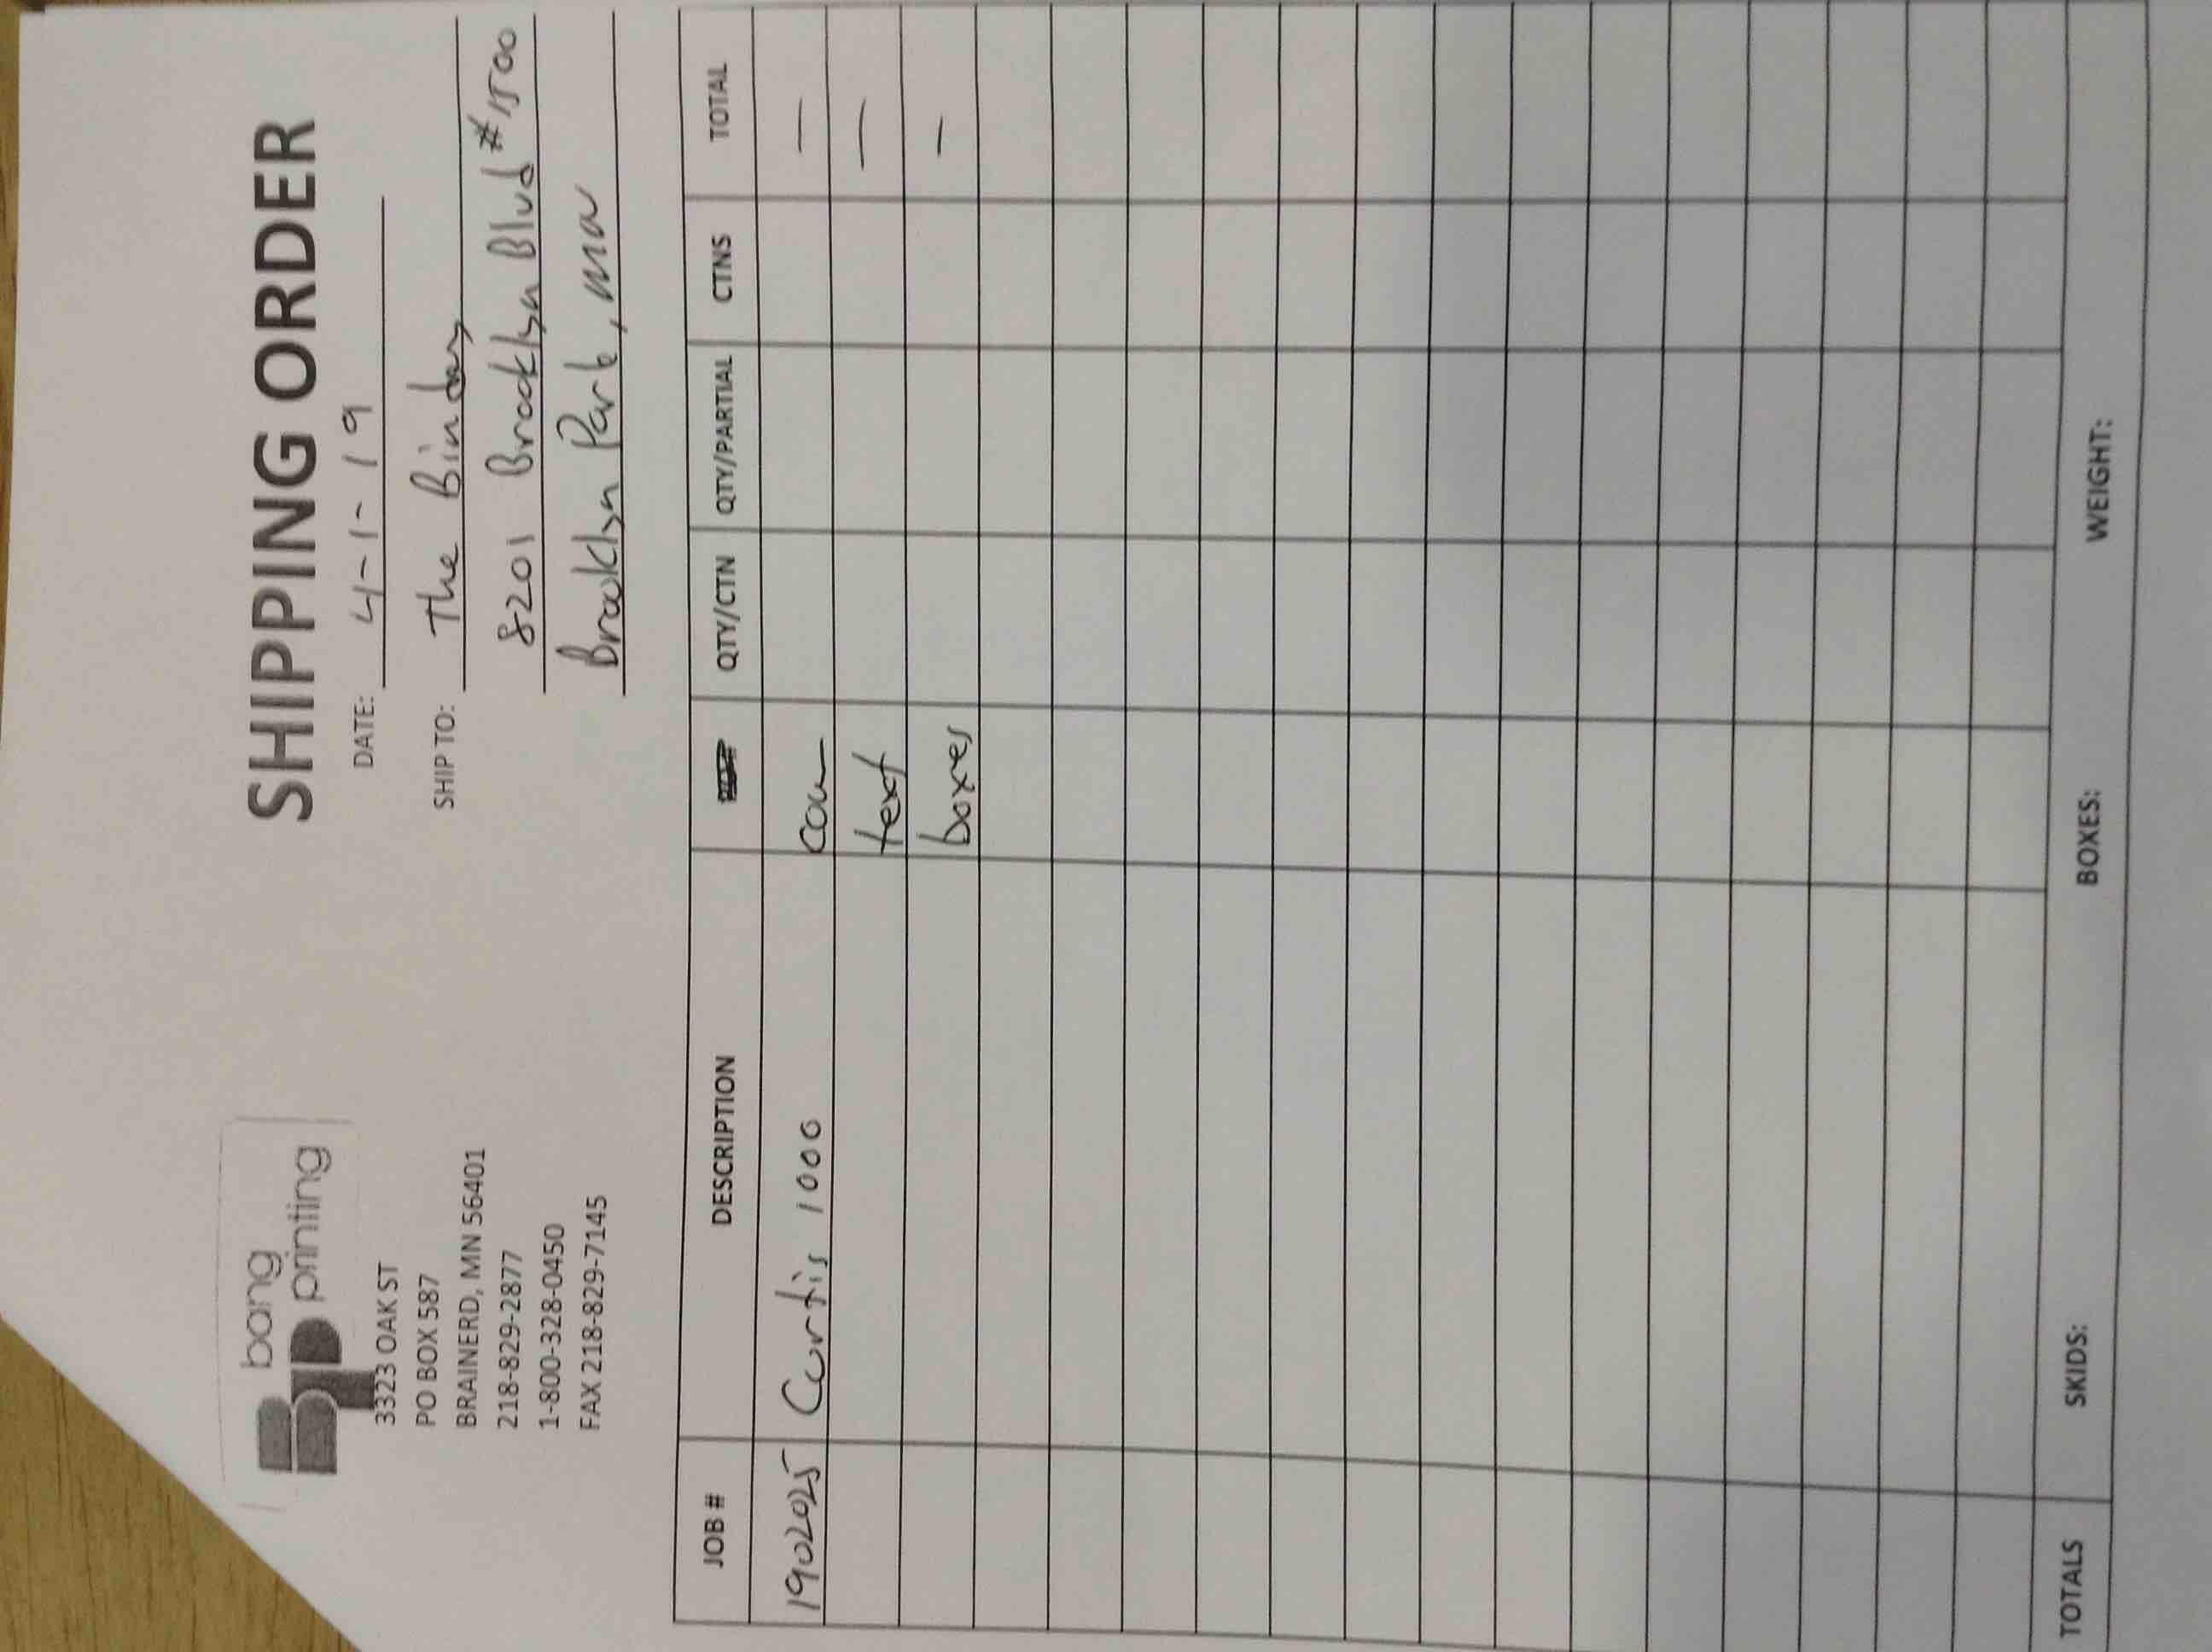 bang
printing
3323 OAK ST
PO BOX 587
BRAINERD, MN 56401
218-829-2877
1-800-328-0450
FAX 218-829-7145
SHIPPING ORDER
DATE: 4-1-19
SHIP TO: The Bindery
8201 Brooklyn Blvd #1500
Brooklyn Park, MN
JOB # DESCRIPTION QTY/CTN QTY/PARTIAL CTNS TOTAL
1902025 Curtis 1000 —
text —
boxes —
TOTALS SKIDS: BOXES: WEIGHT: